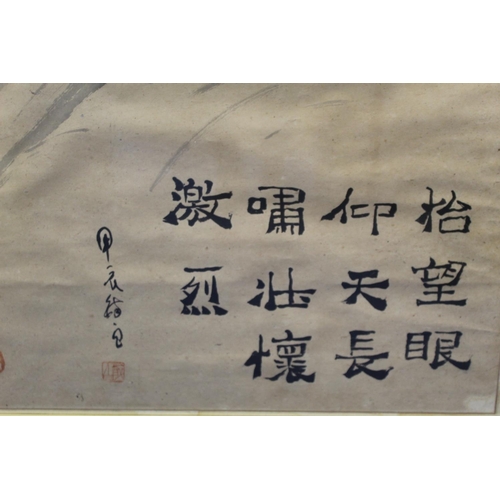 抬望眼
仰天長
嘯壯懷
激烈
甲辰